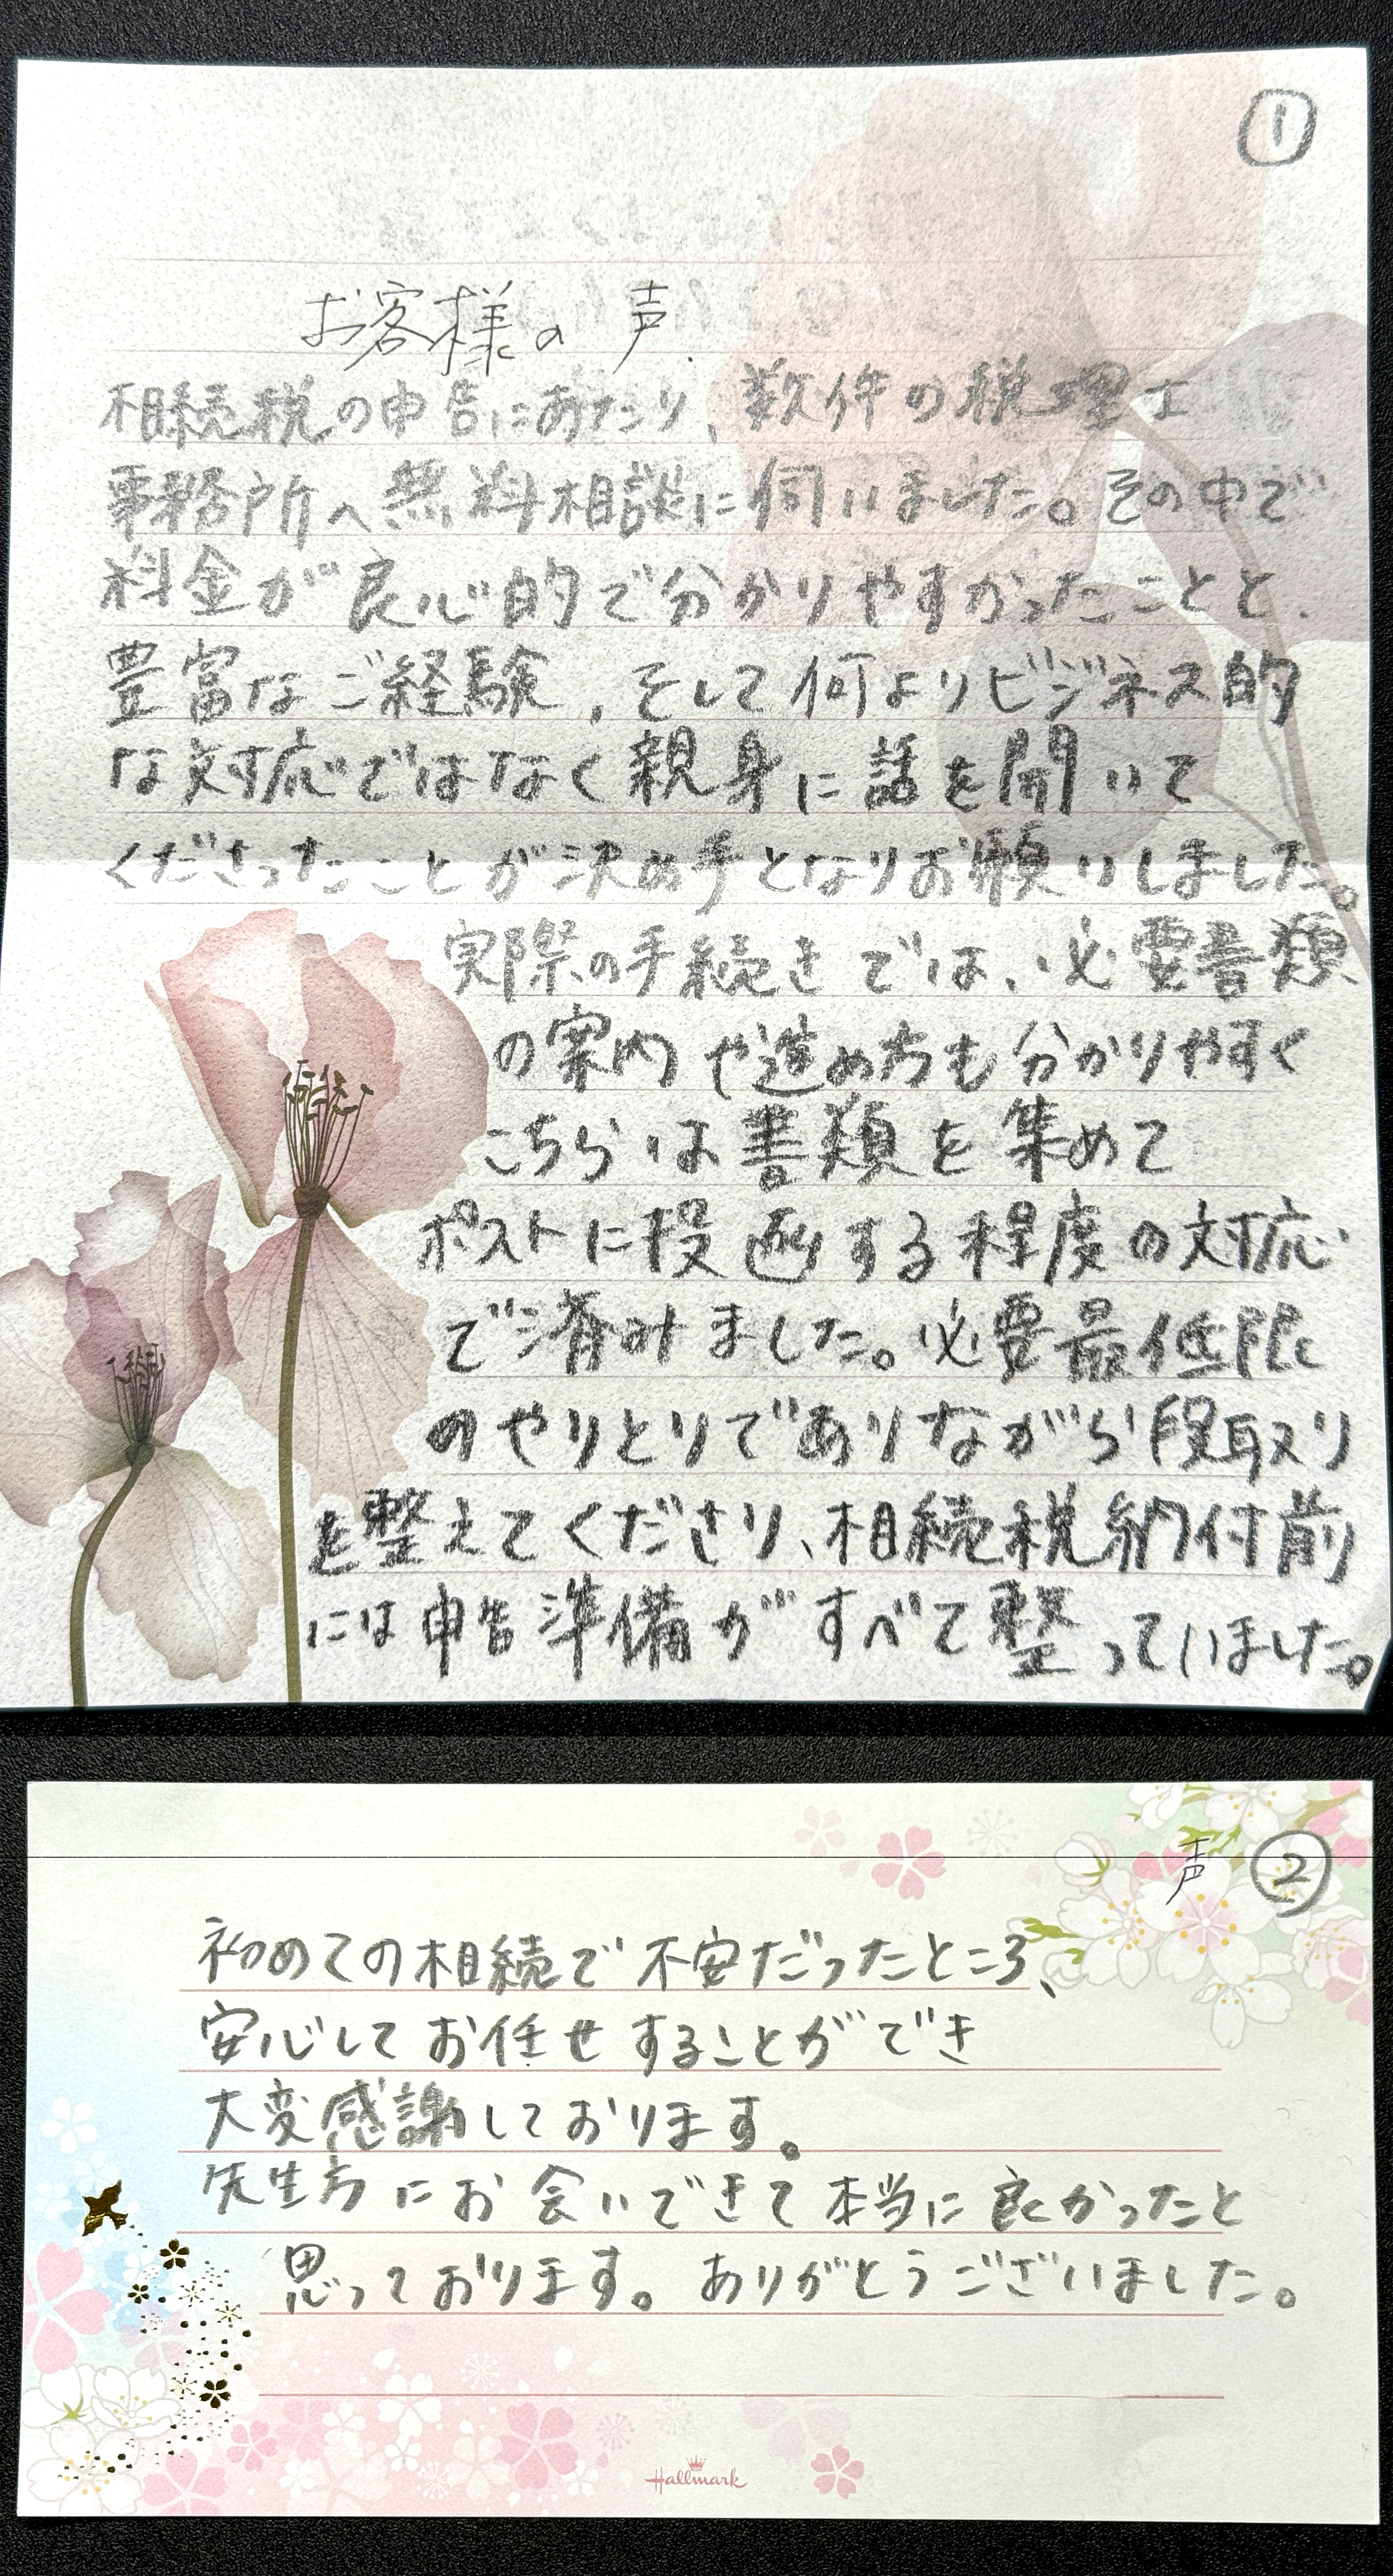 ①
お客様の声.
相続税の申告にあたり、数件の税理士
事務所へ無料相談に伺いました。その中で
料金が良心的で分かりやすかったことと、
豊富なご経験、そして何よりビジネス的
な対応ではなく親身に話を聞いて
くださったことが決め手となりお願いしました。
実際の手続きでは、必要書類
の案内や進め方も分かりやすく
こちらは書類を集めて
ポストに投函する程度の対応
で済みました。必要最低限
のやりとりでありながら段取り
を整えてくださり、相続税納付前
には申告準備がすべて整っていました。
声 ②
初めての相続で不安だったところ、
安心してお任せすることができ
大変感謝しております。
先生方にお会いできて本当に良かったと
思っております。ありがとうございました。
Hallmark